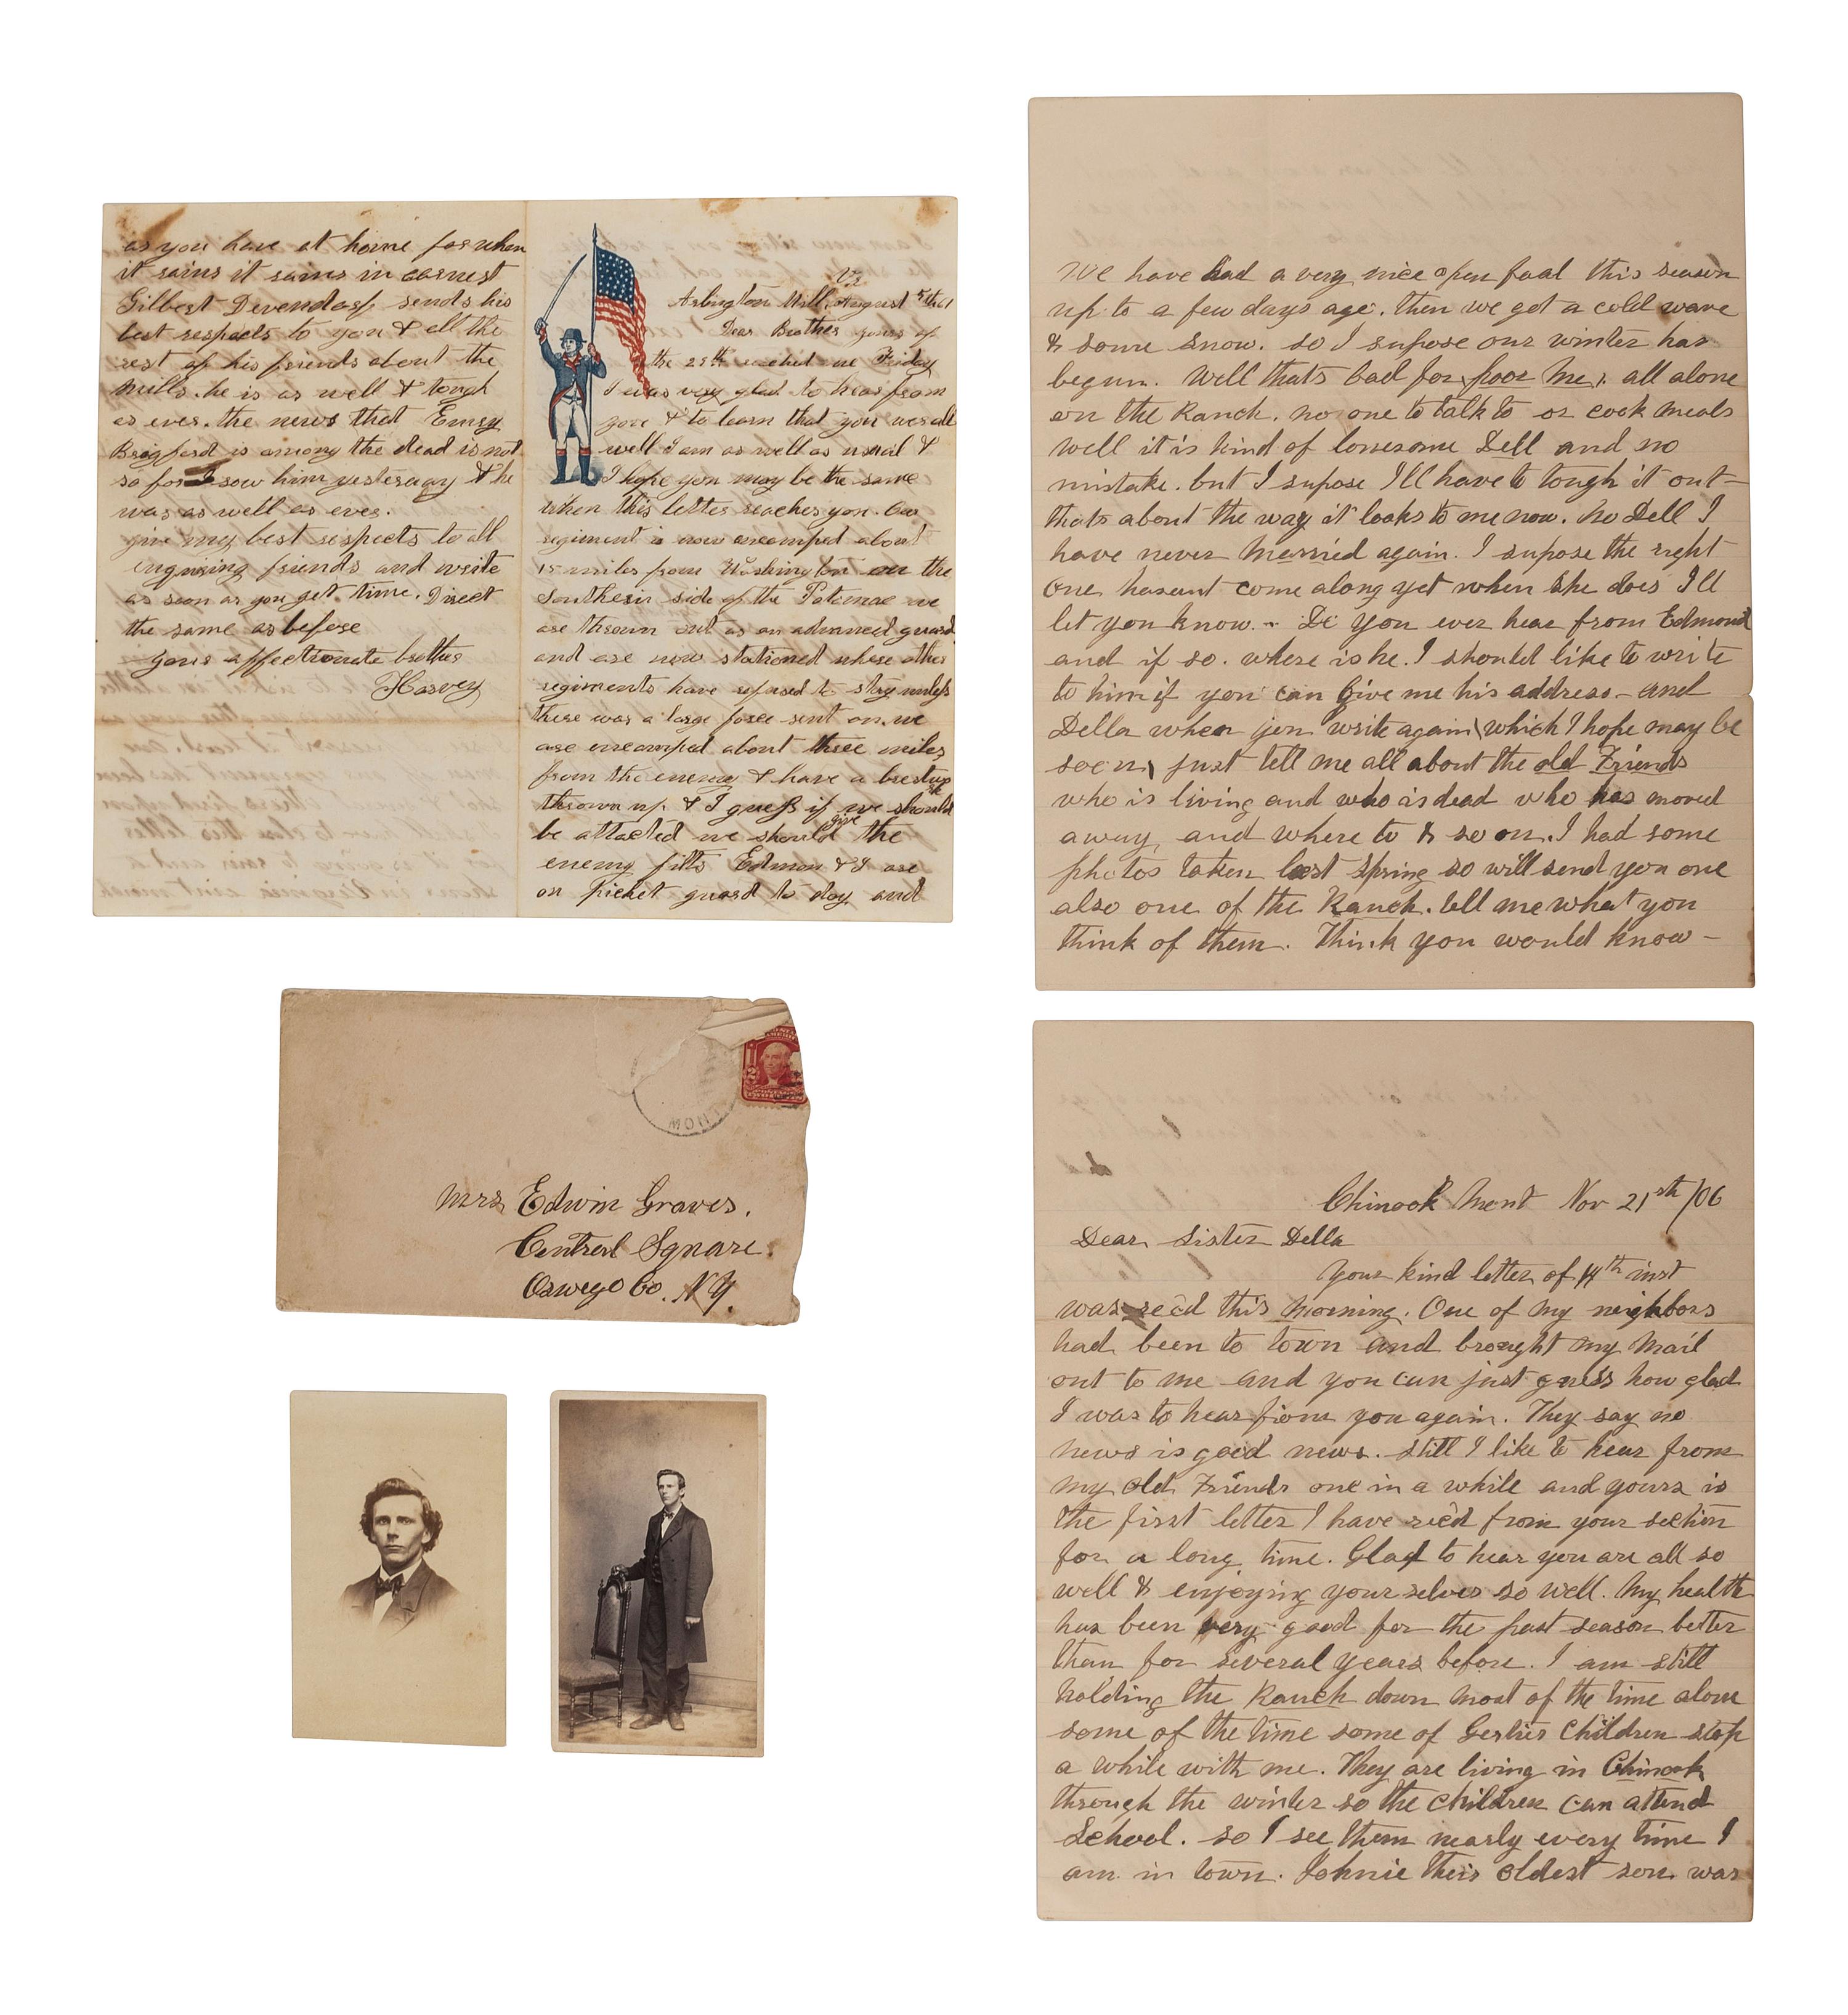 as you have at home for when
it rains it rains in earnest
Gilbert Devendorf sends his
best respects to you & all the
rest of his friends about the
mills. he is as well & tough
as ever. the news that Emery
is among the dead is not
so for I saw him yesteraay & he
was as well as ever.
give my best respects to all
enquiring friends and write
as soon as you get time. Direct
the same as before
yours affectionate brother
Harvey
Va
Arlington Mill, August 5th 61
Dear Brother yours of
the 29th reached me Friday
I was very glad to hear from
you & to learn that you were all
well I am as well as usual &
I hope you may be the same
when this letter reaches you. Our
regiment is now encamped about
15 miles from Washington on the
Southern side of the Potomac we
are thrown out as an advanced guard
and are now stationed where other
regiments have refused to stay unless
there was a large force sent on. we
are encamped about three miles
from the enemy & have a
thrown up. & I guess if we should
be attacted we should give the
enemy fitts Edmon & I are
on picket guard to day and
We have had a very nice open faal this season
up to a few days ago. then we got a cold wave
& some snow. so I supose our winter has
begun. Well thats bad for poor me, all alone
on the Ranch. no one to talk to or cook meals
well it is kind of lonesome Dell and no
mistake. but I supose I'll have to tough it out -
thats about the way it looks to me now. No Dell I
have never Married again. I supose the right
one hasent come along yet when she does I'll
let you know. - Do you ever hear from Edmond
and if so. where is he. I should like to write
to him if you can give me his address - and
Della when you write again (which I hope may be
soon) just tell me all about the old Friends
who is living and who is dead who has moved
away, and where to & so on. I had some
photos taken last spring so will send you one
also one of the Ranch. tell me what you
think of them. Think you would know -
MON
TWO
2
Mrs Edwin Graves.
Central Square.
Oswego Co. N.Y.
Chinook Mont Nov 21st /06
Dear Sister Della
Your kind letter of 14th inst
was rec'd this morning. One of my neighbors
had been to town and brought my mail
out to me and you can just guess how glad
I was to hear from you again. They say no
news is good news. still I like to hear from
my old Friends one in a while and yours is
the first letter I have rec'd from your section
for a long time. Glad to hear you are all so
well & enjoying yourselves so well. My health
has been very good for the past season better
than for several years before. I am still
holding the Ranch down most of the time alone
some of the time some of Gerties Children stop
a while with me. They are living in Chinook
through the winter so the children can attend
School. so I see them nearly every time I
am in town. Johnie their oldest son was